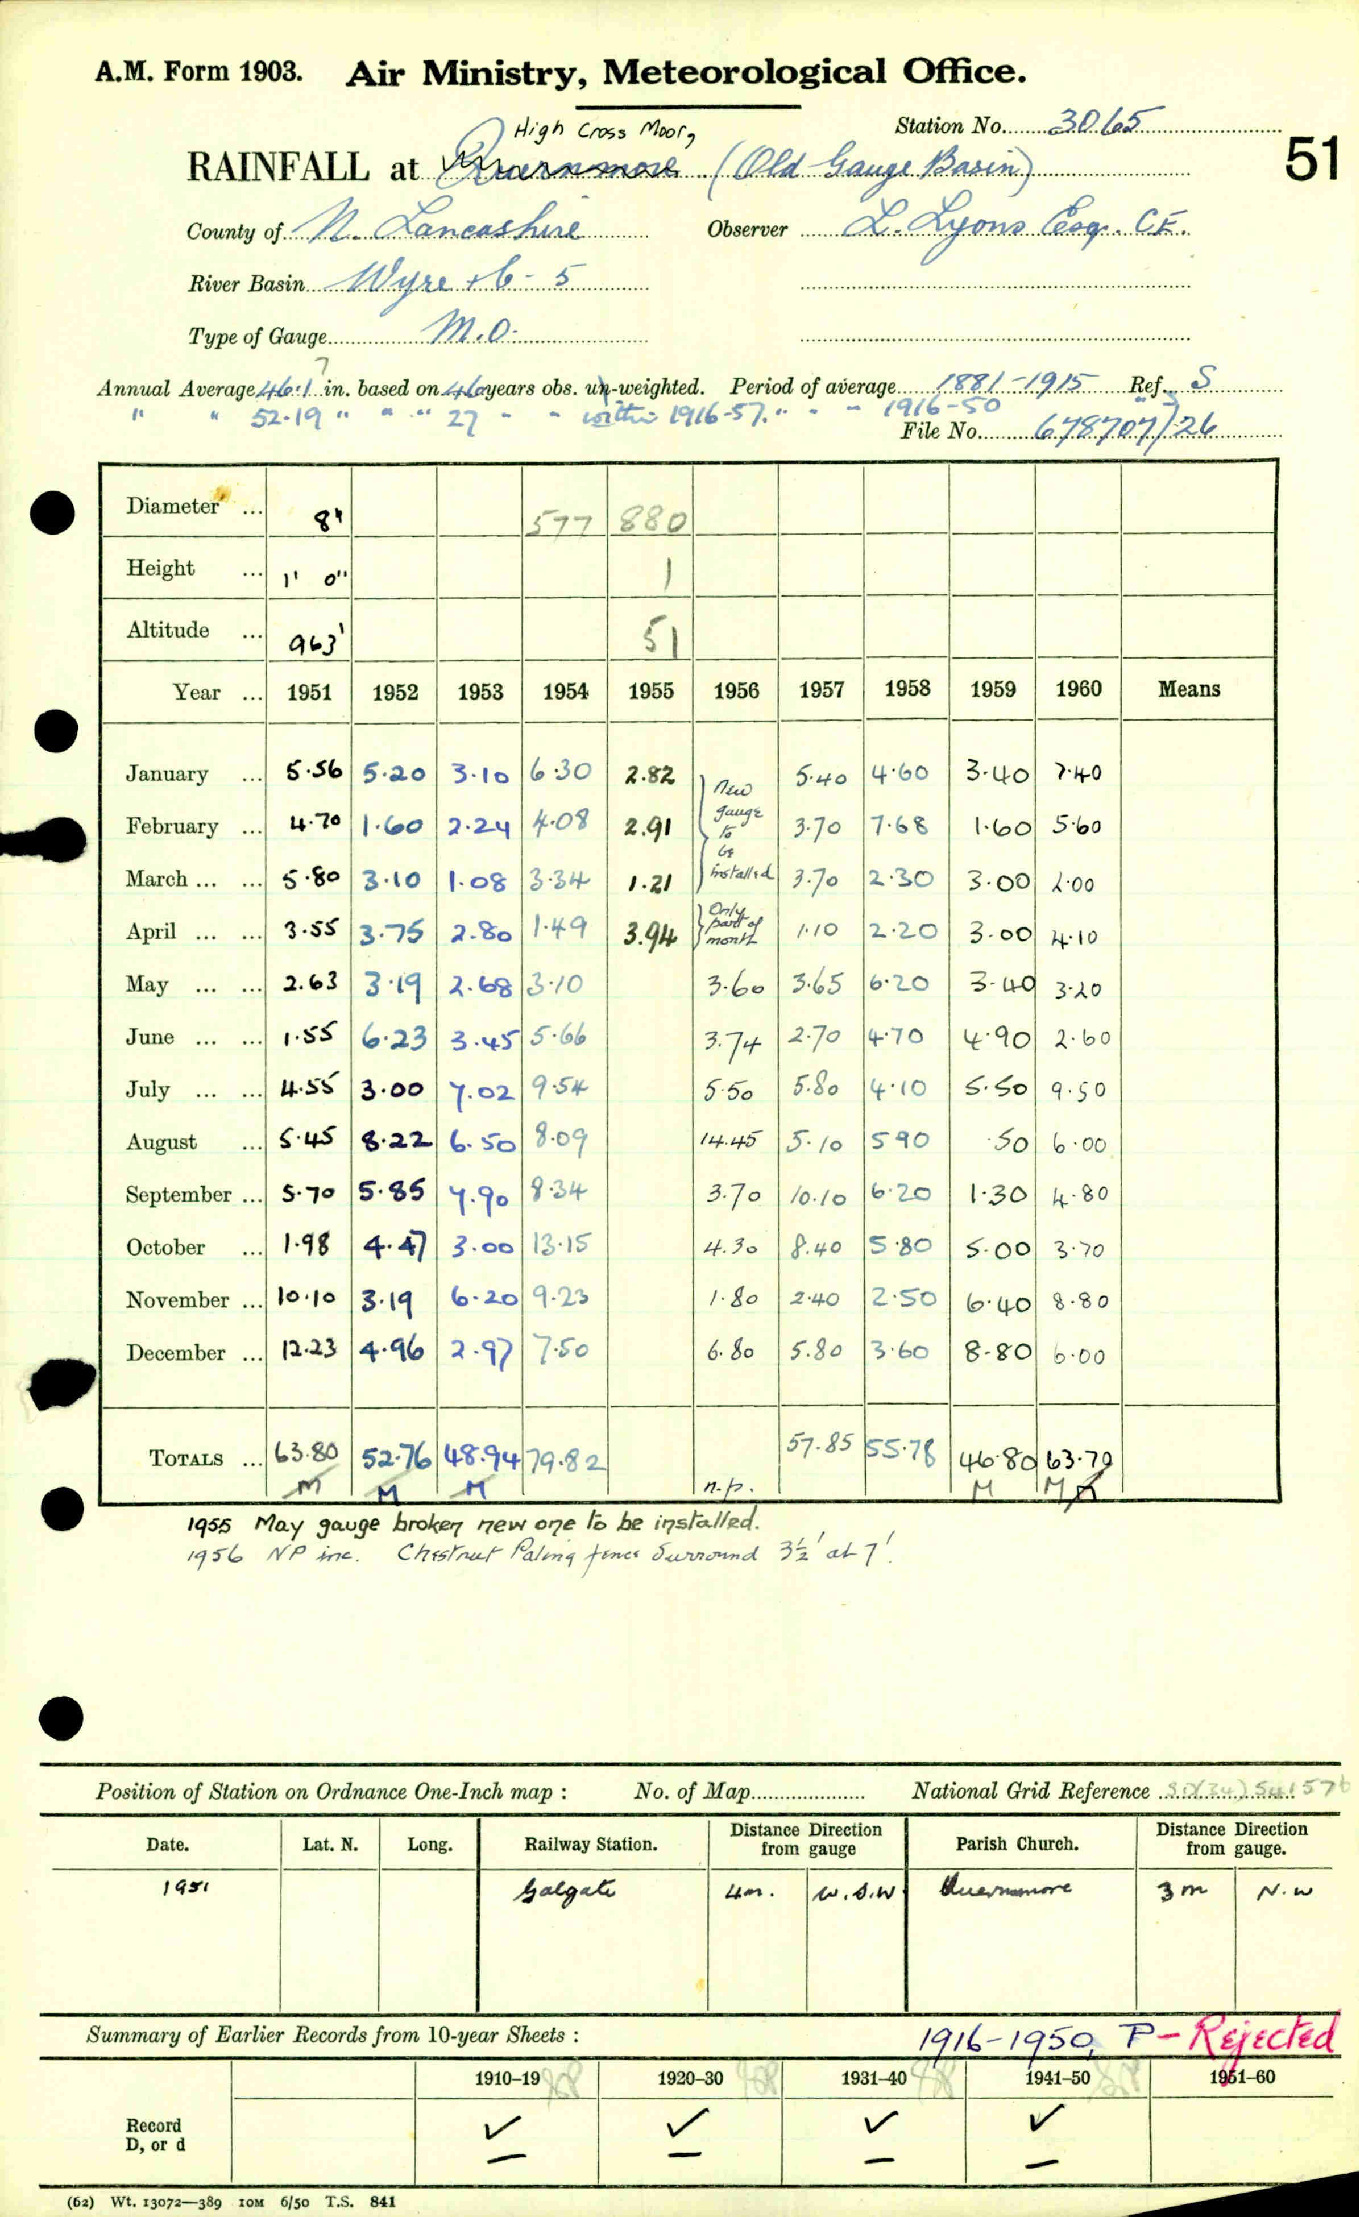 A.M. Form 1903. Air Ministry, Meteorological Office.
Station No. 3065
51
High Cross Moor,
RAINFALL at Quernmore (Old Gauge Basin)
County of N. Lancashire Observer L. Lyons Esq. C.E.
River Basin Wyre +6-5
Type of Gauge M.O.
7
Annual Average 46.1 in. based on 46 years obs. un-weighted. Period of average 1881-1915 Ref. S
" " 52.19 " " " 27 " " within 1916-57. " " " 1916-50
File No. 678707/26
Diameter ... 8" 577 880
Height ... 1' 0" 1
Altitude ... 963' 51
Year ... 1951 1952 1953 1954 1955 1956 1957 1958 1959 1960 Means
January ... 5.56 5.20 3.10 6.30 2.82 New 5.40 4.60 3.40 7.40
February ... 4.70 1.60 2.24 4.08 2.91 gauge to 3.70 7.68 1.60 5.60
March ... ... 5.80 3.10 1.08 3.34 1.21 be installed 3.70 2.30 3.00 2.00
April ... ... 3.55 3.75 2.80 1.49 3.94 Only part of month 1.10 2.20 3.00 4.10
May ... ... 2.63 3.19 2.68 3.10 3.60 3.65 6.20 3.40 3.20
June ... ... 1.55 6.23 3.45 5.66 3.74 2.70 4.70 4.90 2.60
July ... ... 4.55 3.00 7.02 9.54 5.50 5.80 4.10 5.50 9.50
August ... 5.45 8.22 6.50 8.09 14.45 5.10 5 90 .50 6.00
September ... 5.70 5.85 7.90 8.34 3.70 10.10 6.20 1.30 4.80
October ... 1.98 4.47 3.00 13.15 4.30 8.40 5.80 5.00 3.70
November ... 10.10 3.19 6.20 9.23 1.80 2.40 2.50 6.40 8.80
December ... 12.23 4.96 2.97 7.50 6.80 5.80 3.60 8.80 6.00
TOTALS ... 63.80 52.76 48.94 79.82 57.85 55.78 46.80 63.70
M M M n.p. M M
1955 May gauge broken new one to be installed.
1956 NP inc. Chestnut Paling fence surround 3½' at 7'.
Position of Station on Ordnance One-Inch map : No. of Map National Grid Reference SD(34) 541576
Date. Lat. N. Long. Railway Station. Distance from gauge Direction Parish Church. Distance from gauge. Direction
1951 Galgate 4m. W.S.W Quernmore 3 m N.W
Summary of Earlier Records from 10-year Sheets : 1916-1950, P - Rejected
1910–19 1920–30 1931–40 1941–50 1951–60
Record ✓ ✓ ✓ ✓
D, or d — — — —
(62) Wt. 13072—389 10M 6/50 T.S. 841